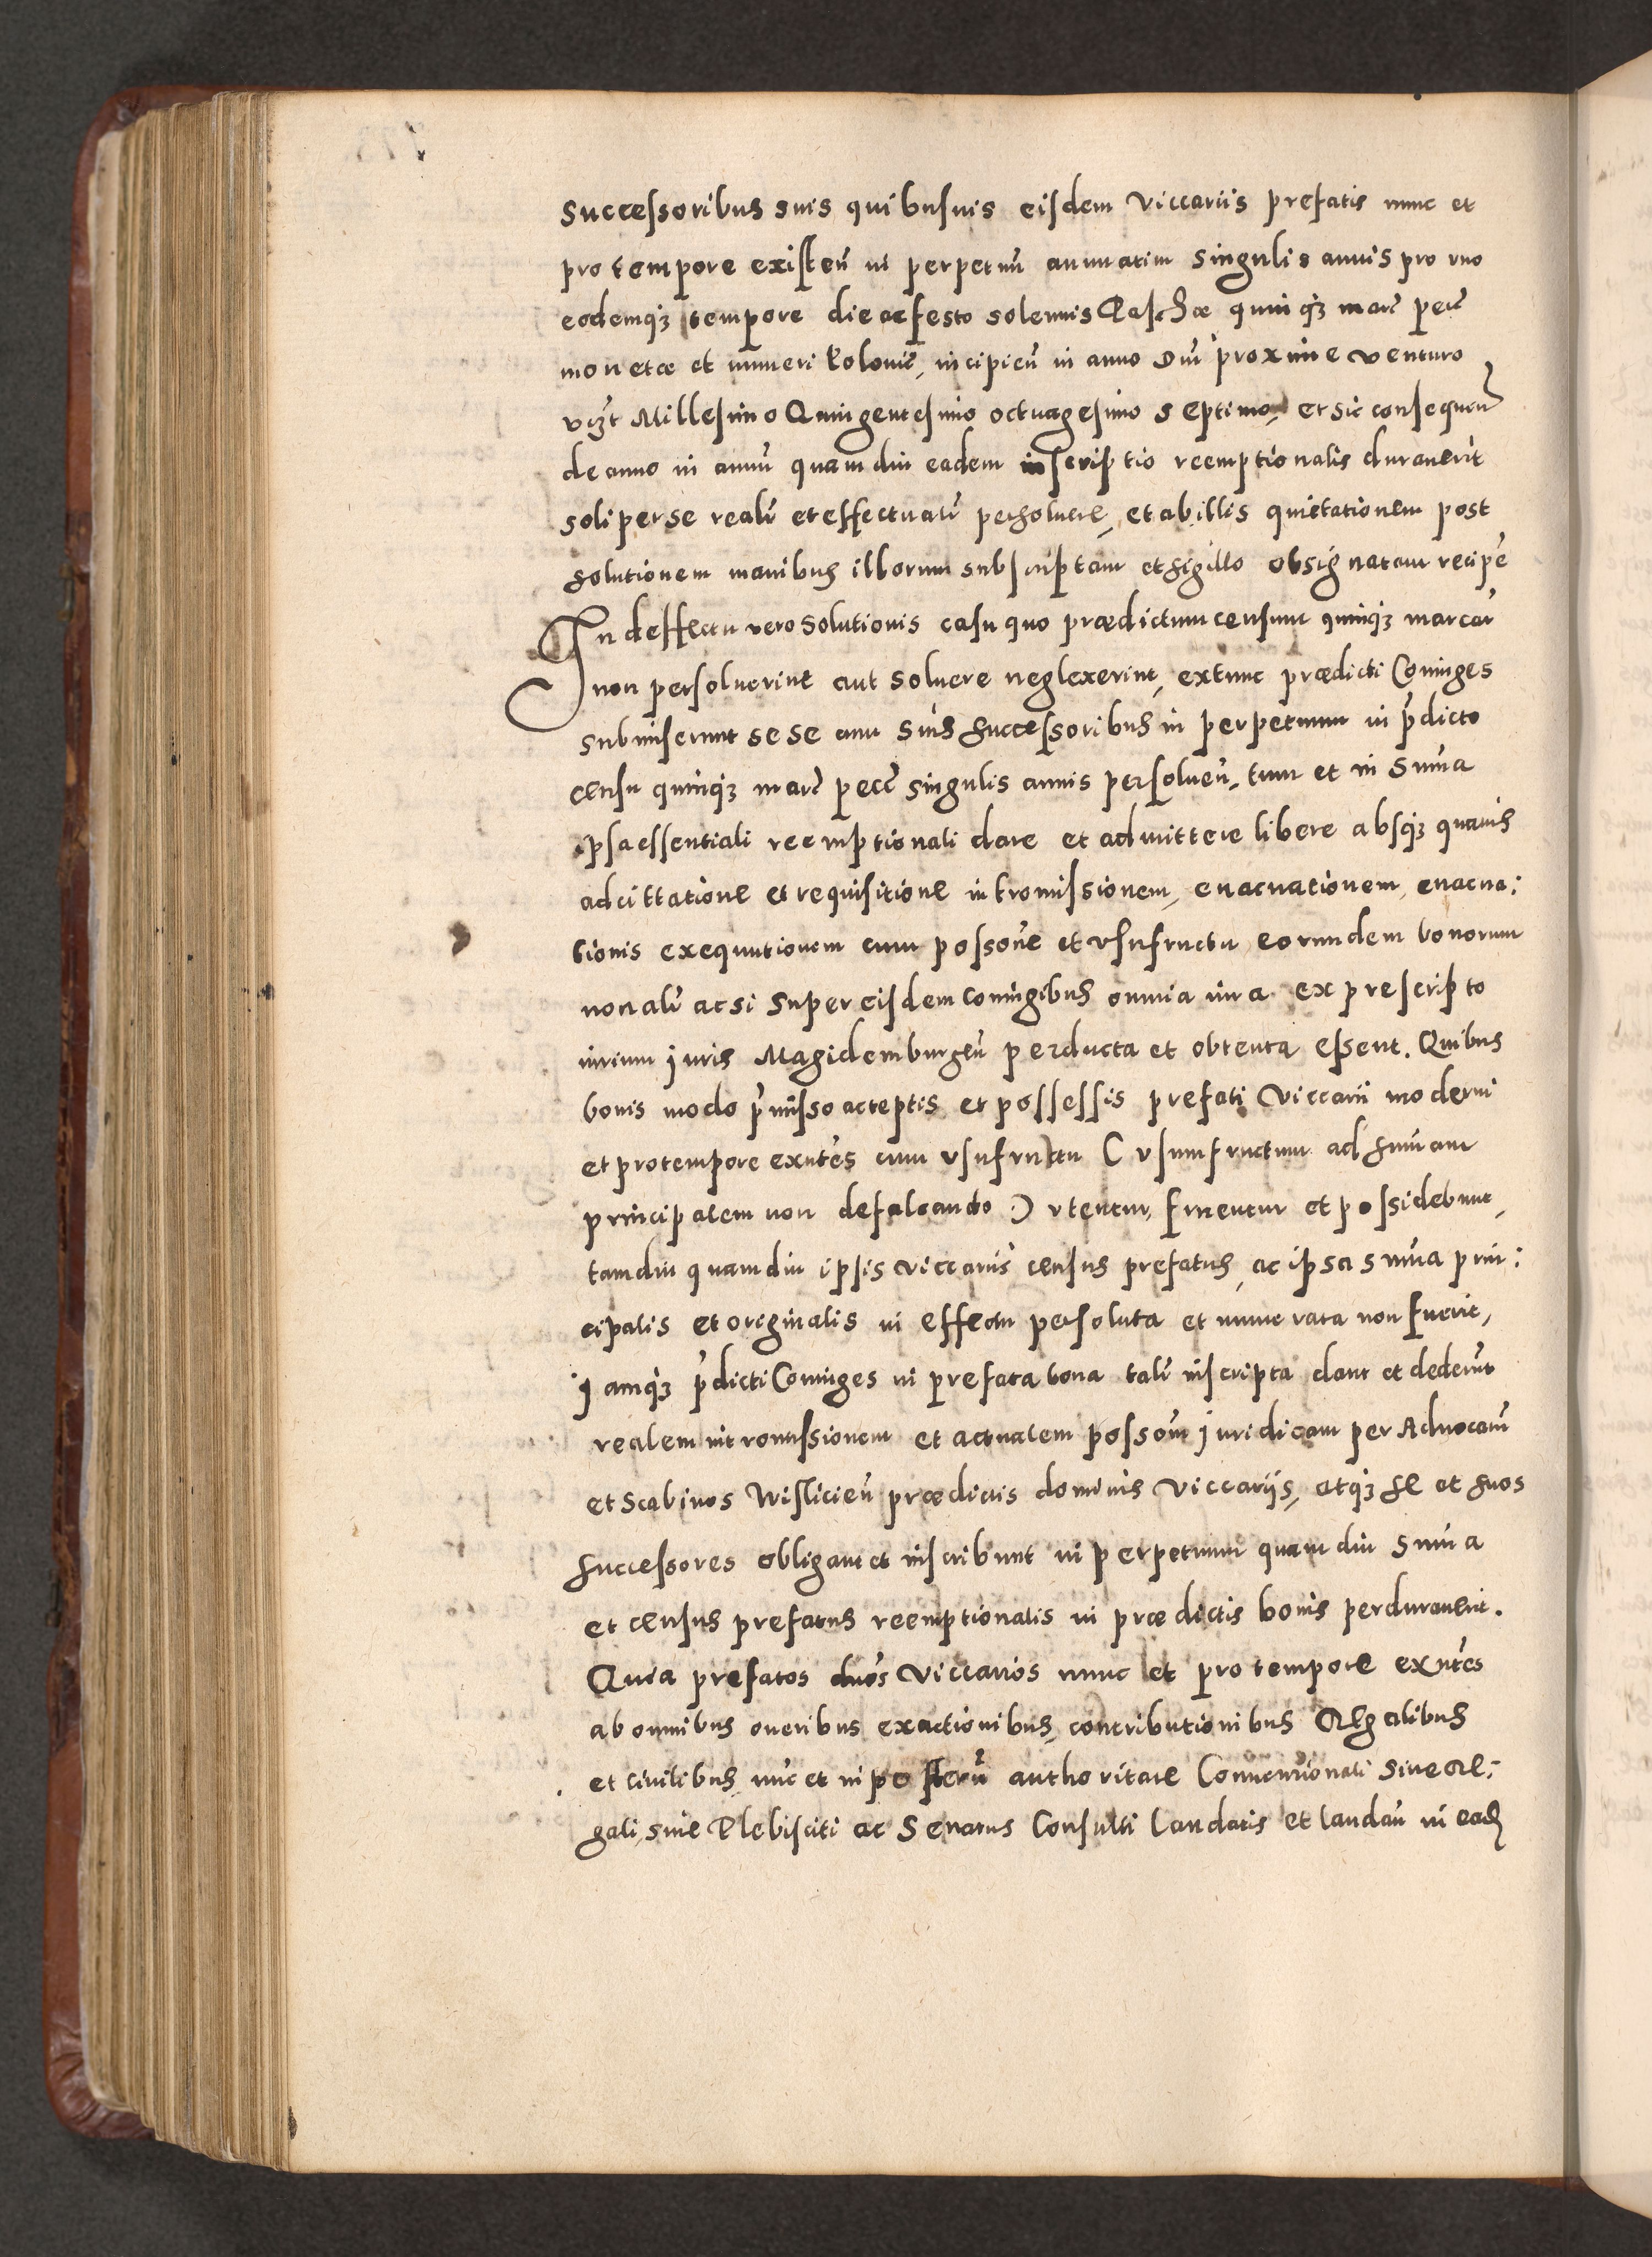 Successoribus suis quibusuis eisdem Viccariis prefatis nunc et
pro tempore existeñ in perpetuũ annuatim singulis annis pro vno
eodemqꝫ tempore die ac festo solennis Paschæ quinqꝫ marc̃ pec̃
monetæ et numeri Polonic̃, incipieñ in anno Dñi proxime venturo
vꝫt Millesimo Quingentesimo octuagesimo septimo, et sic consequeñ
de anno in annũ quamdiu eadem inscriptio reemptionalis durauerit
soli per se realit̃ et effectualit̃ persoluere, et ab illis quietationem post
solutionem manibus illorum subscriptam et sigillo obsignatam recipe͂
In deffectu vero solutionis casu quo prædictum censum quinqꝫ marcar̃
non persoluerint aut soluere neglexerint, extunc prædicti Coniuges
submiserunt sese cum suis successoribus in perpetuum in p̃dicto
censu quinqꝫ marc̃ pec̃ singulis annis persolueñ, tum et in sum̃a
ipsa essentiali reemptionali dare et admittere libere absqꝫ quauis
adcittatione et requisitione intromissionem, euacuationem, euacua:
tionis exequutionem cum possone͂ et vsufructu eorundem bonorum
non alit̃ ac si super eisdem coniugibus omnia iura ex prescripto
iurium juris Magidemburgeñ perducta et obtenta essent. Quibus
bonis modo p̃misso acceptis et possessis prefati Viccarii moderni
et pro tempore exñtes cum vsufructu ( vsumfructum ad sum̃am
principalem non defalcando ) vtentur, fruentur et possidebunt,
tamdiu quamdiu ipsis viccariis census prefatus, ac ipsa sum̃a prin:
cipalis et originalis in effectu persoluta et numerata non fuerit,
jamqꝫ p̃dicti Coniuges in prefata bona talit̃ inscripta dant et dederũt
realem intromissionem et actualem possom̃ juridicam per Aduocatũ
et Scabinos Wisliciеñ prædictis dominis Viccariis, atqꝫ se et suos
successores obligant et inscribunt in perpetuum quamdiu sum̃a
et census prefatus reemptionalis in prædictis bonis perdurauerit.
Quia prefatos dños Viccarios nunc et pro tempore exñtes
ab omnibus oneribus, exactionibus, contributionibus Regalibus
et ciuilibus, nũc et in posterũ authoritate Conuentionali siue Re:
gali, siue Plebisciti ac Senatus Consulti laudatis et laudañ in ead̃